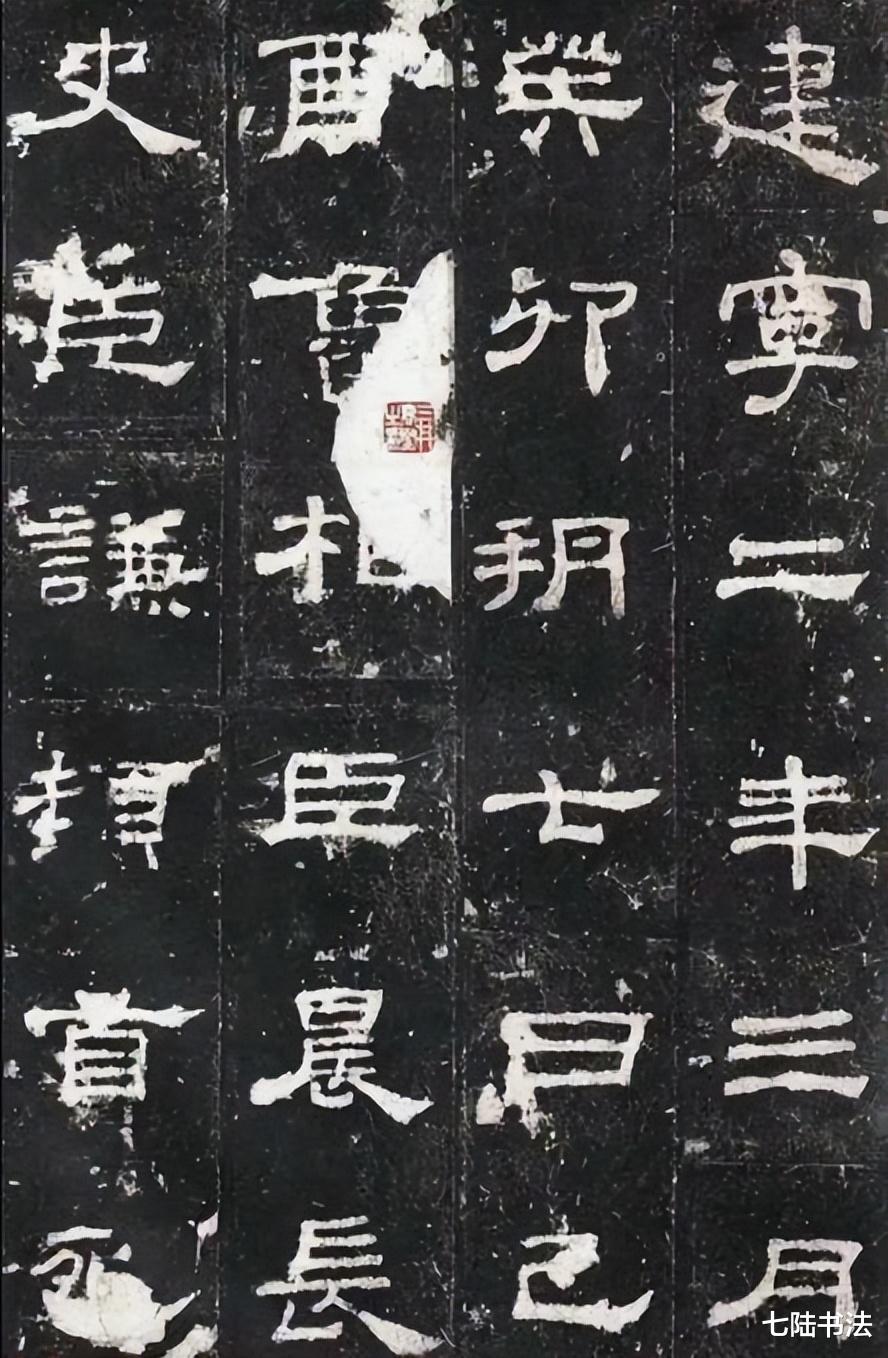 建寧二年三月
癸卯朔七日己
酉魯相臣晨長
史臣謙頓首死
七陆书法